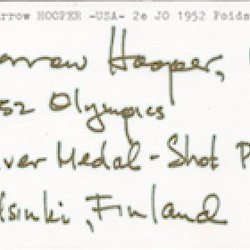 arrow HOOPER -USA- 2e JO 1952 Poids
arrow Hooper,
52 Olympics
ver Medal - Shot P
lsinki, Finland